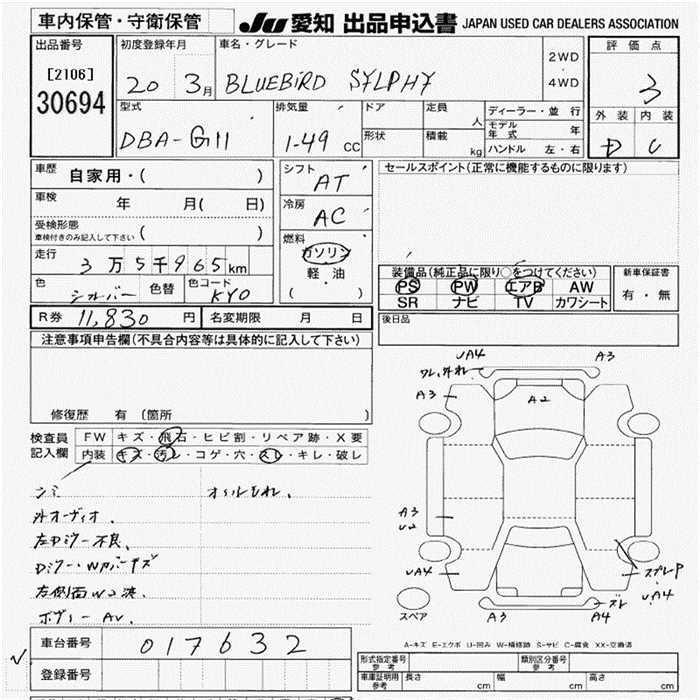 車内保管・守衛保管
JU 愛知 出品申込書 JAPAN USED CAR DEALERS ASSOCIATION
出品番号
[2106]
30694
初度登録年月
20 3月
車名・グレード
BLUEBIRD SYLPHY
2WD
・
4WD
評価点
3
外装 内装
D C
型式
DBA-G11
排気量
1-49 cc
ドア
定員 人
形状
積載 kg
ディーラー・並行
モデル年式 年
ハンドル 左・右
車歴
自家用・( )
車検
年 月( 日)
受検形態
車検付きのみ記入して下さい ( )
走行
3万5千965km
色
シルバー
色替
色コード
KYO
シフト
AT
冷房
AC
燃料
ガソリン
軽・油
( )
セールスポイント(正常に機能するものに限ります)
装備品(純正品に限り○をつけてください)
PS PW エアB AW
SR ナビ TV カワシート
新車保証書
有・無
後日品
R券 11,830 円
名変期限 月 日
注意事項申告欄(不具合内容等は具体的に記入して下さい)
修復歴 有 (箇所 )
検査員
記入欄
FW キズ・飛石・ヒビ割・リペア跡・X要
内装 キズ・汚レ・コゲ・穴・スレ・キレ・破レ
シミ
オイルもれ、
外オーディオ、
左Dミラー不良、
左側面W2決、
ボディーAV、
UA4
A3
ワレ、外れ
A3
A2
A3
U2
UA4
A3
A4
ズレ
スペアP
UA4
スペア
A-キズ E-エクボ U-凹み W-補修跡 S-サビ C-腐食 XX-交換済
車台番号 017632
登録番号
形式指定番号
参考
類別区分番号
参考
車庫証明用
参考
長さ cm
幅 cm
高さ cm